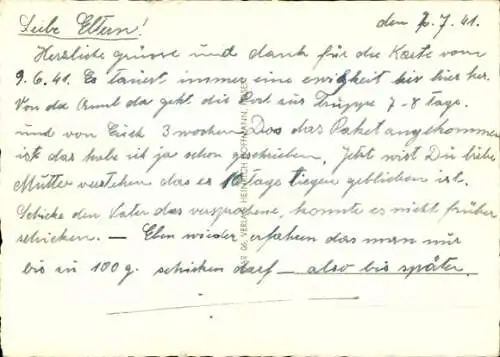 Liebe Eltern! den 7.7.41.
Herzliche grüsse und dank für die Karte vom
9.6.41. Es tauert immer eine ewigkeit bis hier her.
Von da Amml da geht die Post zur Truppe 7-8 Tage.
und von Euch 3 wochen. Das das Paket angekommen
ist das habe ich ja schon geschrieben. Jetzt wirst Du liebe
Mutter verstehen das es 10 Tage liegen geblieben ist.
Schicke den Vater das versprochene, konnte es nicht früher
schicken. – Eben wieder erfahren das man nur
bis zu 100 g. schicken darf – also bis später.
VERLAG HEINRICH HOFFMANN,